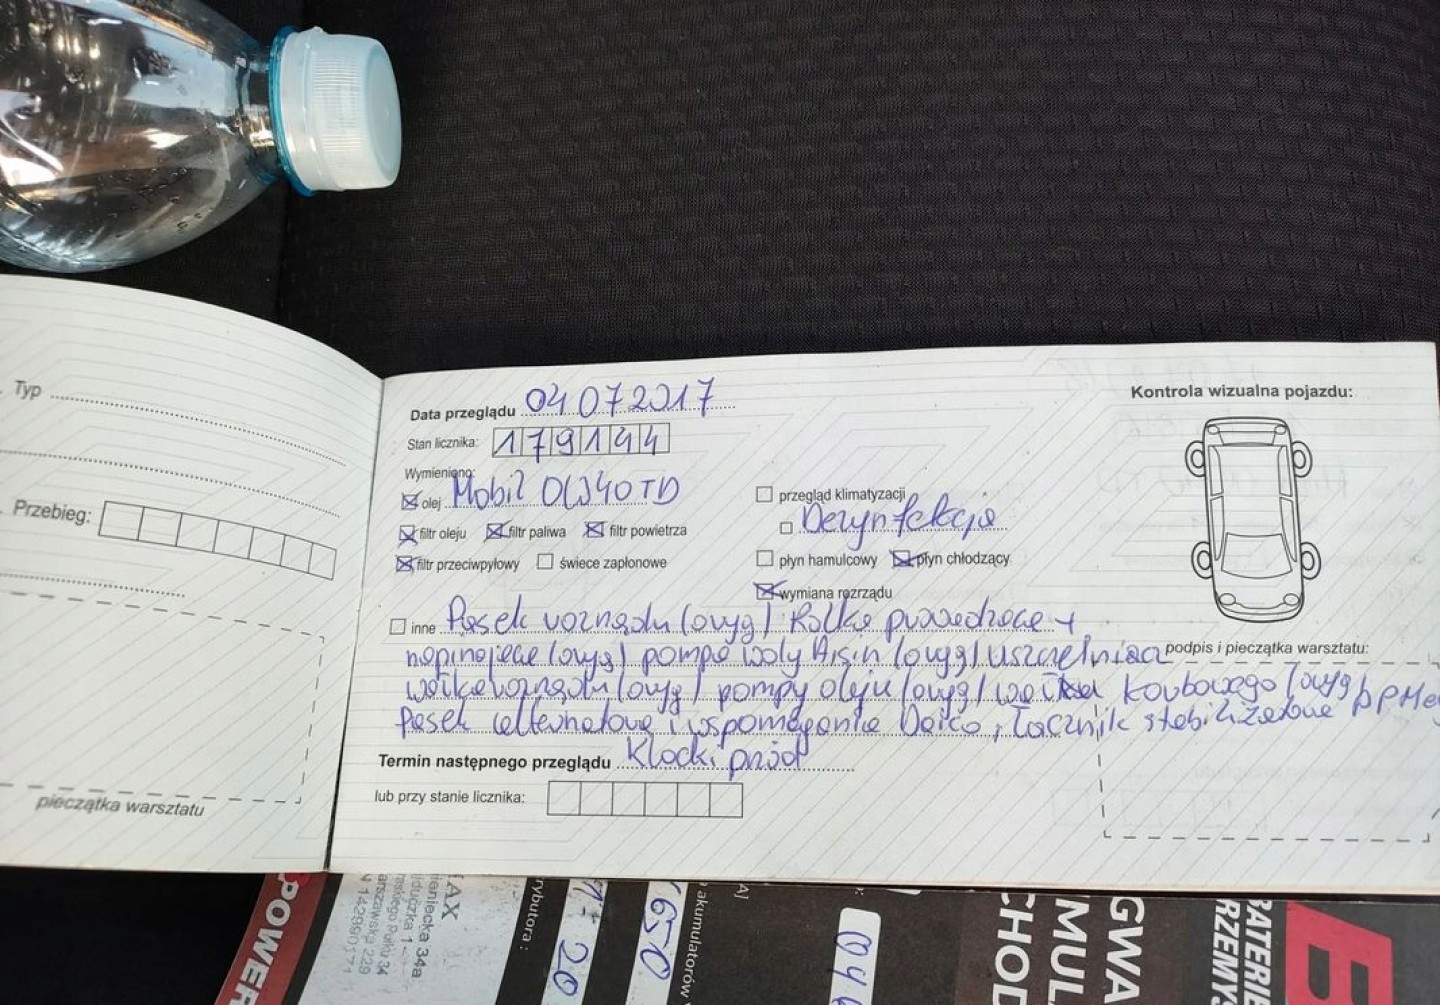 Typ
Przebieg:
pieczątka warsztatu
Data przeglądu 04 07 2017
Stan licznika: 179144
Wymieniono:
olej Mobil 0W40 TD
filtr oleju filtr paliwa filtr powietrza
filtr przeciwpyłowy świece zapłonowe
przegląd klimatyzacji
Dezynfekcja
płyn hamulcowy płyn chłodzący
wymiana rozrządu
inne Pasek rozrządu (oryg) Rolka prowadząca +
napinająca (oryg) pompa wody Aisin (oryg) uszczelniacz
wałka rozrządu (oryg) pompy oleju (oryg) wałka korbowego (oryg)
Pasek alternatora i wspomagania Dayco, Łącznik stabilizatora
Klocki przód
Termin następnego przeglądu
lub przy stanie licznika:
Kontrola wizualna pojazdu:
podpis i pieczątka warsztatu:
POWER
AX
34a
rybutora :
20
650
akumulatorów
A]
04
CHOD
MUL
GWA
RZEMY
BATERIE
B